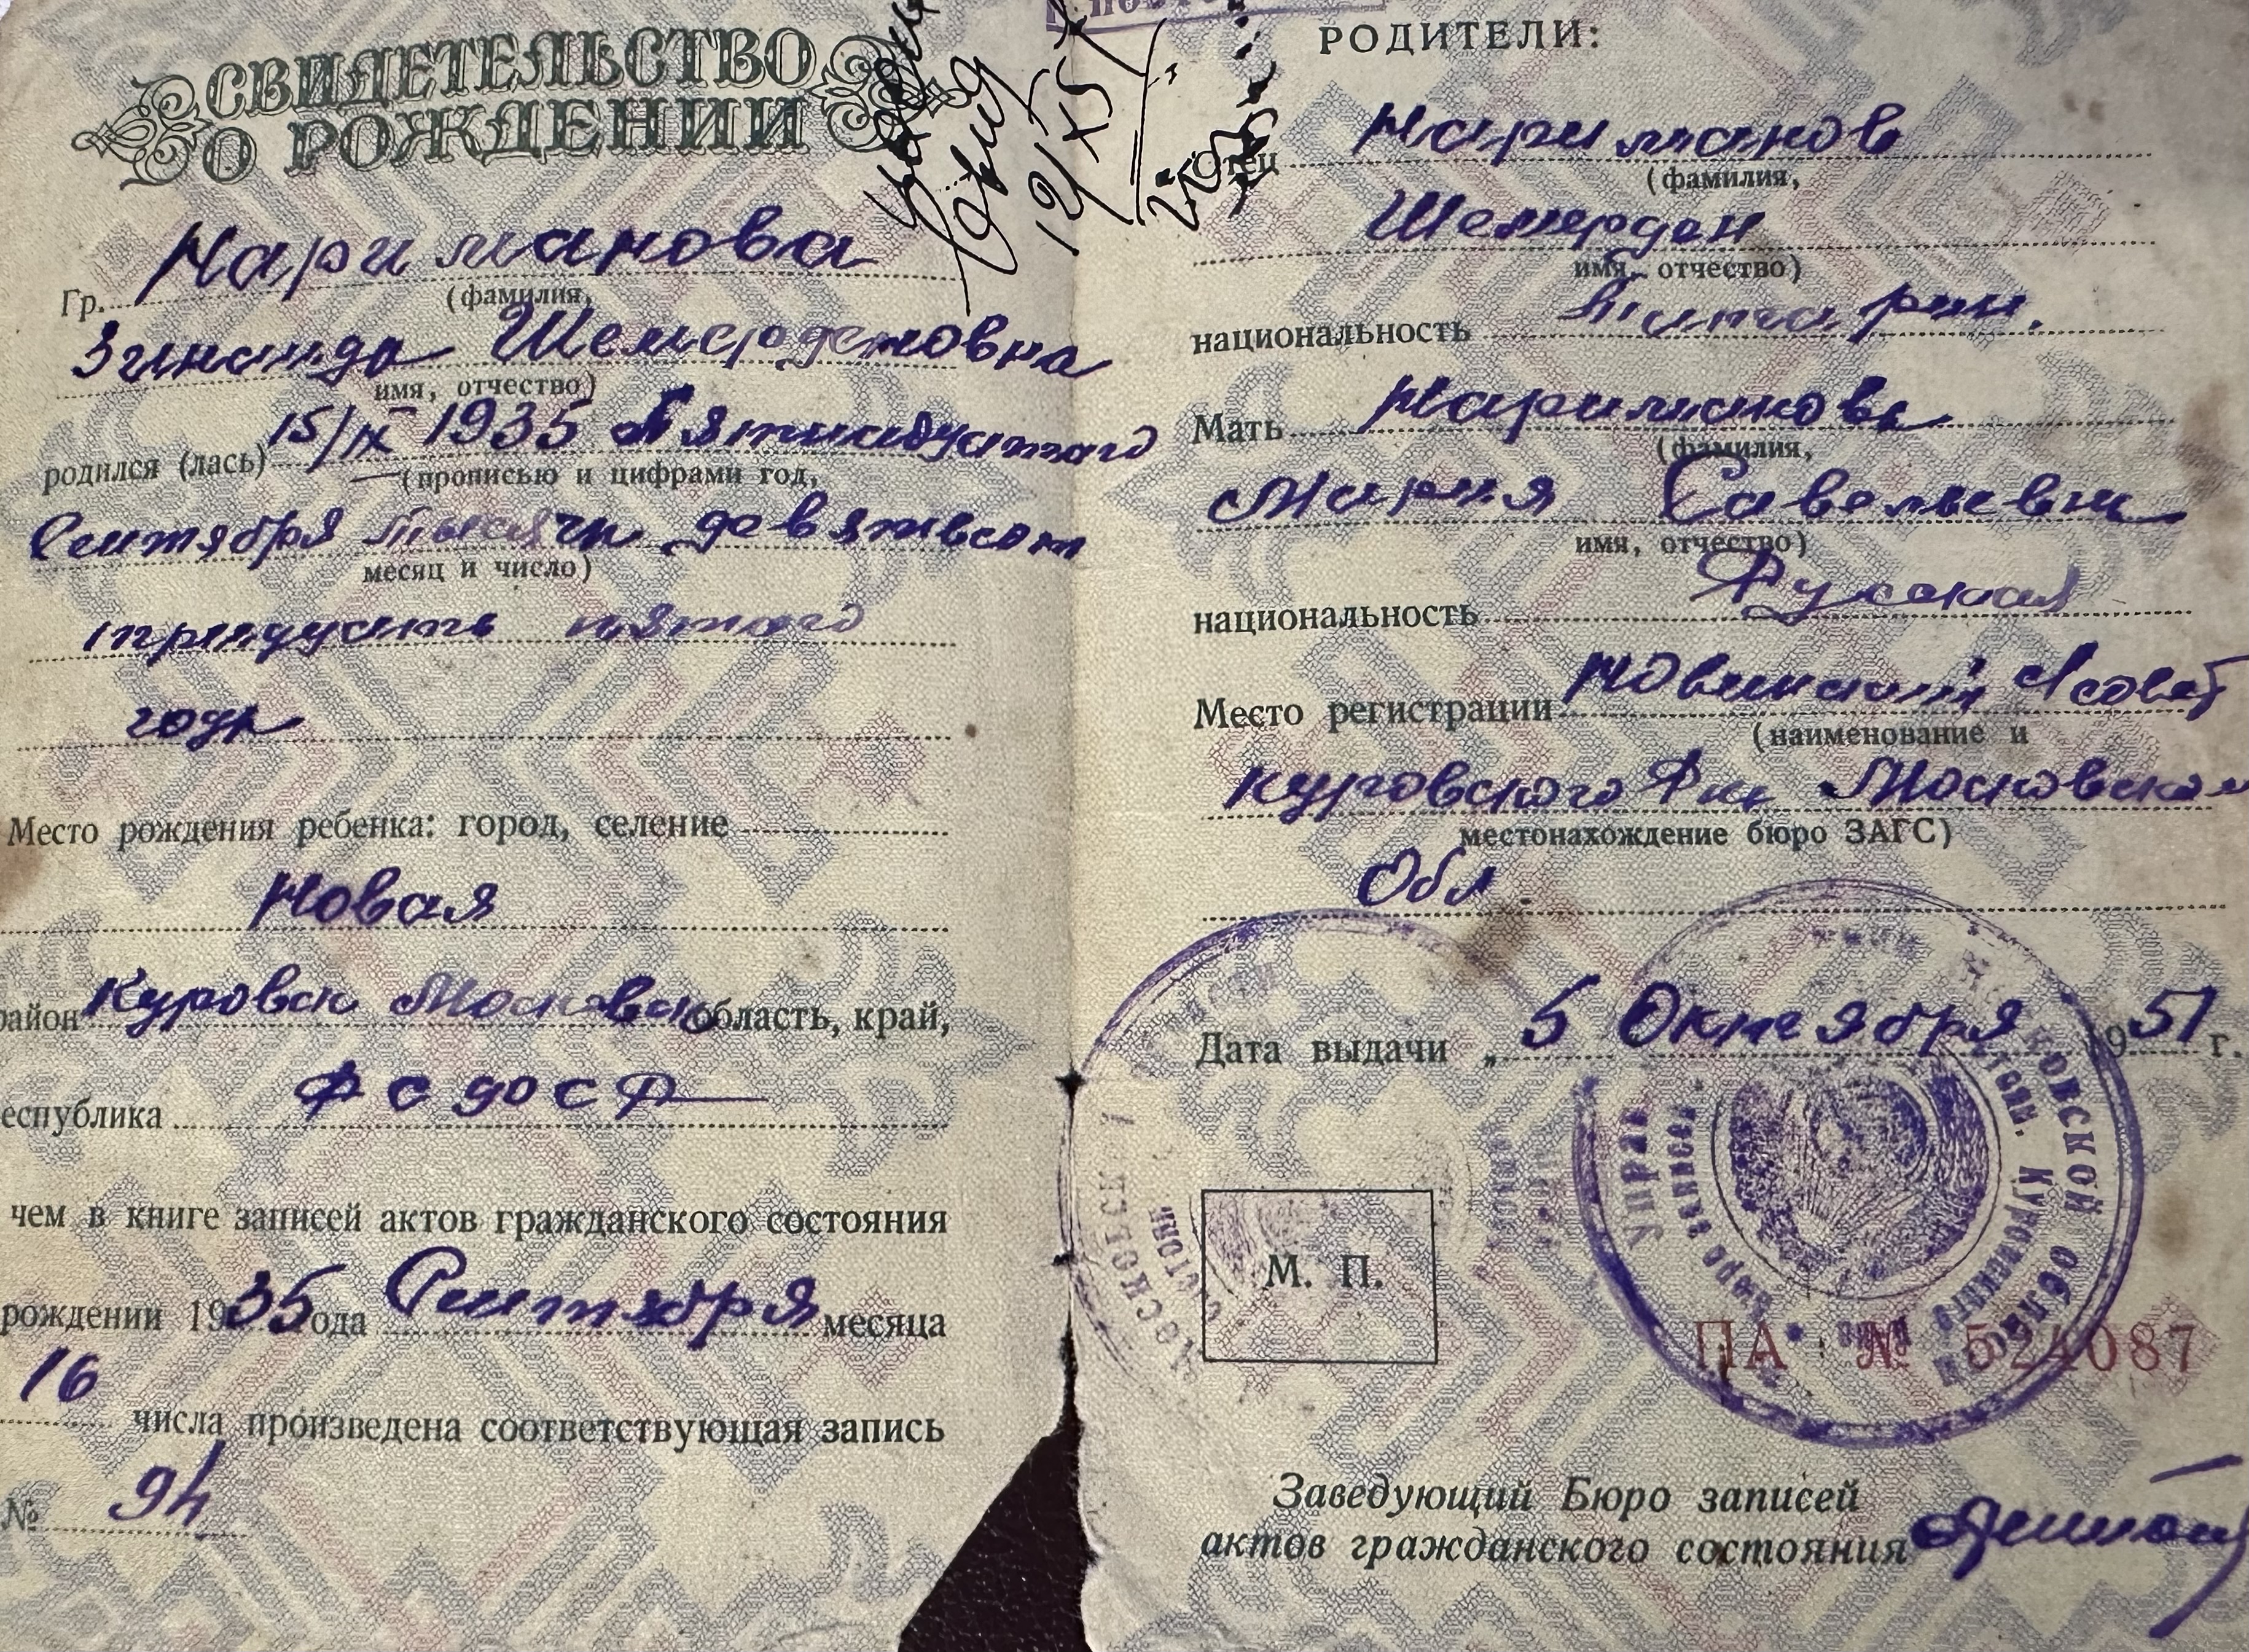 СВИДЕТЕЛЬСТВО
О РОЖДЕНИИ
Гр. Нариманова
(фамилия,
Зинаида Шемерденовна
имя, отчество)
родился (лась) 15/IX 1935 Пятнадцатого
(прописью и цифрами год,
Сентября тысяча девятьсот
месяц и число)
тридцать пятого
года
Место рождения ребенка: город, селение
Новая
район Куровск Московск область, край,
еспублика РСФСР
чем в книге записей актов гражданского состояния
рождении 1935 года Сентября месяца
16 числа произведена соответствующая запись
№ 94
РОДИТЕЛИ:
Отец Нариманов
(фамилия,
Шемердян
имя, отчество)
национальность Татарин.
Мать Нариманова
(фамилия,
Мария Савельевна
имя, отчество)
национальность Русская
Место регистрации Новинский с/совет
(наименование и
Куровского Р-на Московской
местонахождение бюро ЗАГС)
Обл.
Дата выдачи „ 5 Октября 1951 г.
М. П.
ПА № 524087
Заведующий Бюро записей
актов гражданского состояния